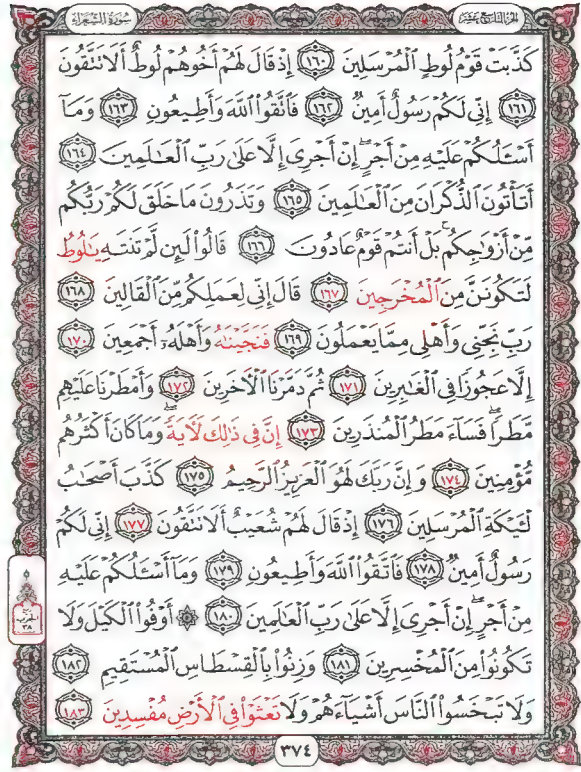 سورة الشعراء
الجزء التاسع عشر
كَذَّبَتۡ قَوۡمُ لُوطٍ ٱلۡمُرۡسَلِينَ ١٦٠ إِذۡ قَالَ لَهُمۡ أَخُوهُمۡ لُوطٌ أَلَا تَتَّقُونَ
١٦١ إِنِّي لَكُمۡ رَسُولٌ أَمِينٞ ١٦٢ فَٱتَّقُواْ ٱللَّهَ وَأَطِيعُونِ ١٦٣ وَمَآ
أَسۡـَٔلُكُمۡ عَلَيۡهِ مِنۡ أَجۡرٍۖ إِنۡ أَجۡرِيَ إِلَّا عَلَىٰ رَبِّ ٱلۡعَٰلَمِينَ ١٦٤
أَتَأۡتُونَ ٱلذُّكۡرَانَ مِنَ ٱلۡعَٰلَمِينَ ١٦٥ وَتَذَرُونَ مَا خَلَقَ لَكُمۡ رَبُّكُم
مِّنۡ أَزۡوَٰجِكُمۚ بَلۡ أَنتُمۡ قَوۡمٌ عَادُونَ ١٦٦ قَالُواْ لَئِن لَّمۡ تَنتَهِ يَٰلُوطُ
لَتَكُونَنَّ مِنَ ٱلۡمُخۡرَجِينَ ١٦٧ قَالَ إِنِّي لِعَمَلِكُم مِّنَ ٱلۡقَالِينَ ١٦٨
رَبِّ نَجِّنِي وَأَهۡلِي مِمَّا يَعۡمَلُونَ ١٦٩ فَنَجَّيۡنَٰهُ وَأَهۡلَهُۥٓ أَجۡمَعِينَ ١٧٠
إِلَّا عَجُوزٗا فِي ٱلۡغَٰبِرِينَ ١٧١ ثُمَّ دَمَّرۡنَا ٱلۡأٓخَرِينَ ١٧٢ وَأَمۡطَرۡنَا عَلَيۡهِم
مَّطَرٗاۖ فَسَآءَ مَطَرُ ٱلۡمُنذَرِينَ ١٧٣ إِنَّ فِي ذَٰلِكَ لَأٓيَةٗۖ وَمَا كَانَ أَكۡثَرُهُم
مُّؤۡمِنِينَ ١٧٤ وَإِنَّ رَبَّكَ لَهُوَ ٱلۡعَزِيزُ ٱلرَّحِيمُ ١٧٥ كَذَّبَ أَصۡحَٰبُ
لۡـَٔيۡكَةِ ٱلۡمُرۡسَلِينَ ١٧٦ إِذۡ قَالَ لَهُمۡ شُعَيۡبٌ أَلَا تَتَّقُونَ ١٧٧ إِنِّي لَكُمۡ
رَسُولٌ أَمِينٞ ١٧٨ فَٱتَّقُواْ ٱللَّهَ وَأَطِيعُونِ ١٧٩ وَمَآ أَسۡـَٔلُكُمۡ عَلَيۡهِ
مِنۡ أَجۡرٍۖ إِنۡ أَجۡرِيَ إِلَّا عَلَىٰ رَبِّ ٱلۡعَٰلَمِينَ ١٨٠ ۞ أَوۡفُواْ ٱلۡكَيۡلَ وَلَا
تَكُونُواْ مِنَ ٱلۡمُخۡسِرِينَ ١٨١ وَزِنُواْ بِٱلۡقِسۡطَاسِ ٱلۡمُسۡتَقِيمِ ١٨٢
وَلَا تَبۡخَسُواْ ٱلنَّاسَ أَشۡيَآءَهُمۡ وَلَا تَعۡثَوۡاْ فِي ٱلۡأَرۡضِ مُفۡسِدِينَ ١٨٣
الحزب
٣٨
٣٧٤